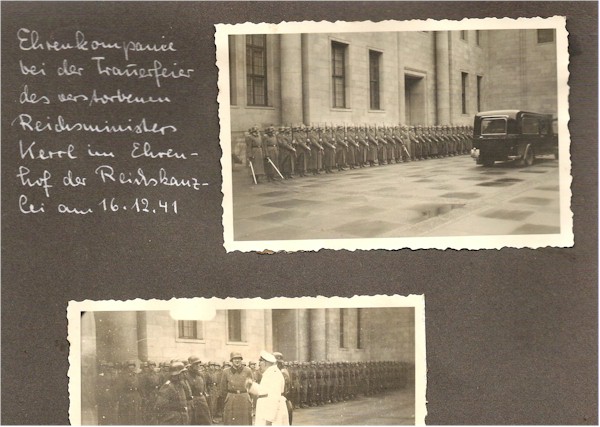 Ehrenkompanie
bei der Trauerfeier
des verstorbenen
Reichsministers
Kerrl im Ehren-
hof der Reichskanz-
lei am 16.12.41